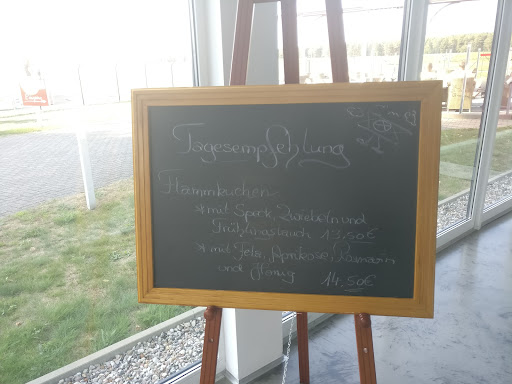 Tagesempfehlung
Flammkuchen
* mit Speck, Zwiebeln und
Frühlingslauch 13,50€
* mit Feta, Aprikose, Rosmarin
und Honig 14,50€